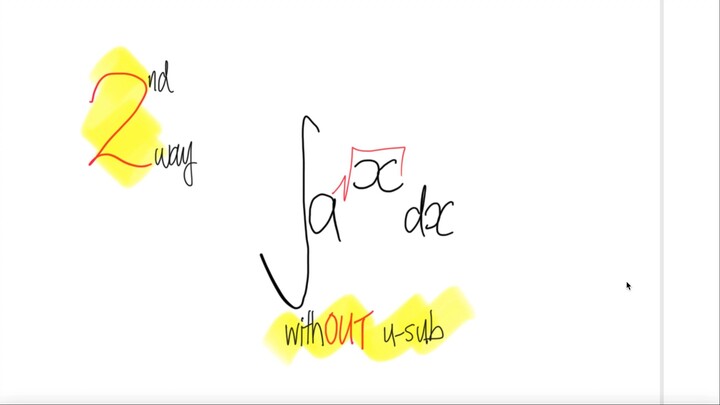 2nd
way
∫a^√x dx
withOUT u-sub